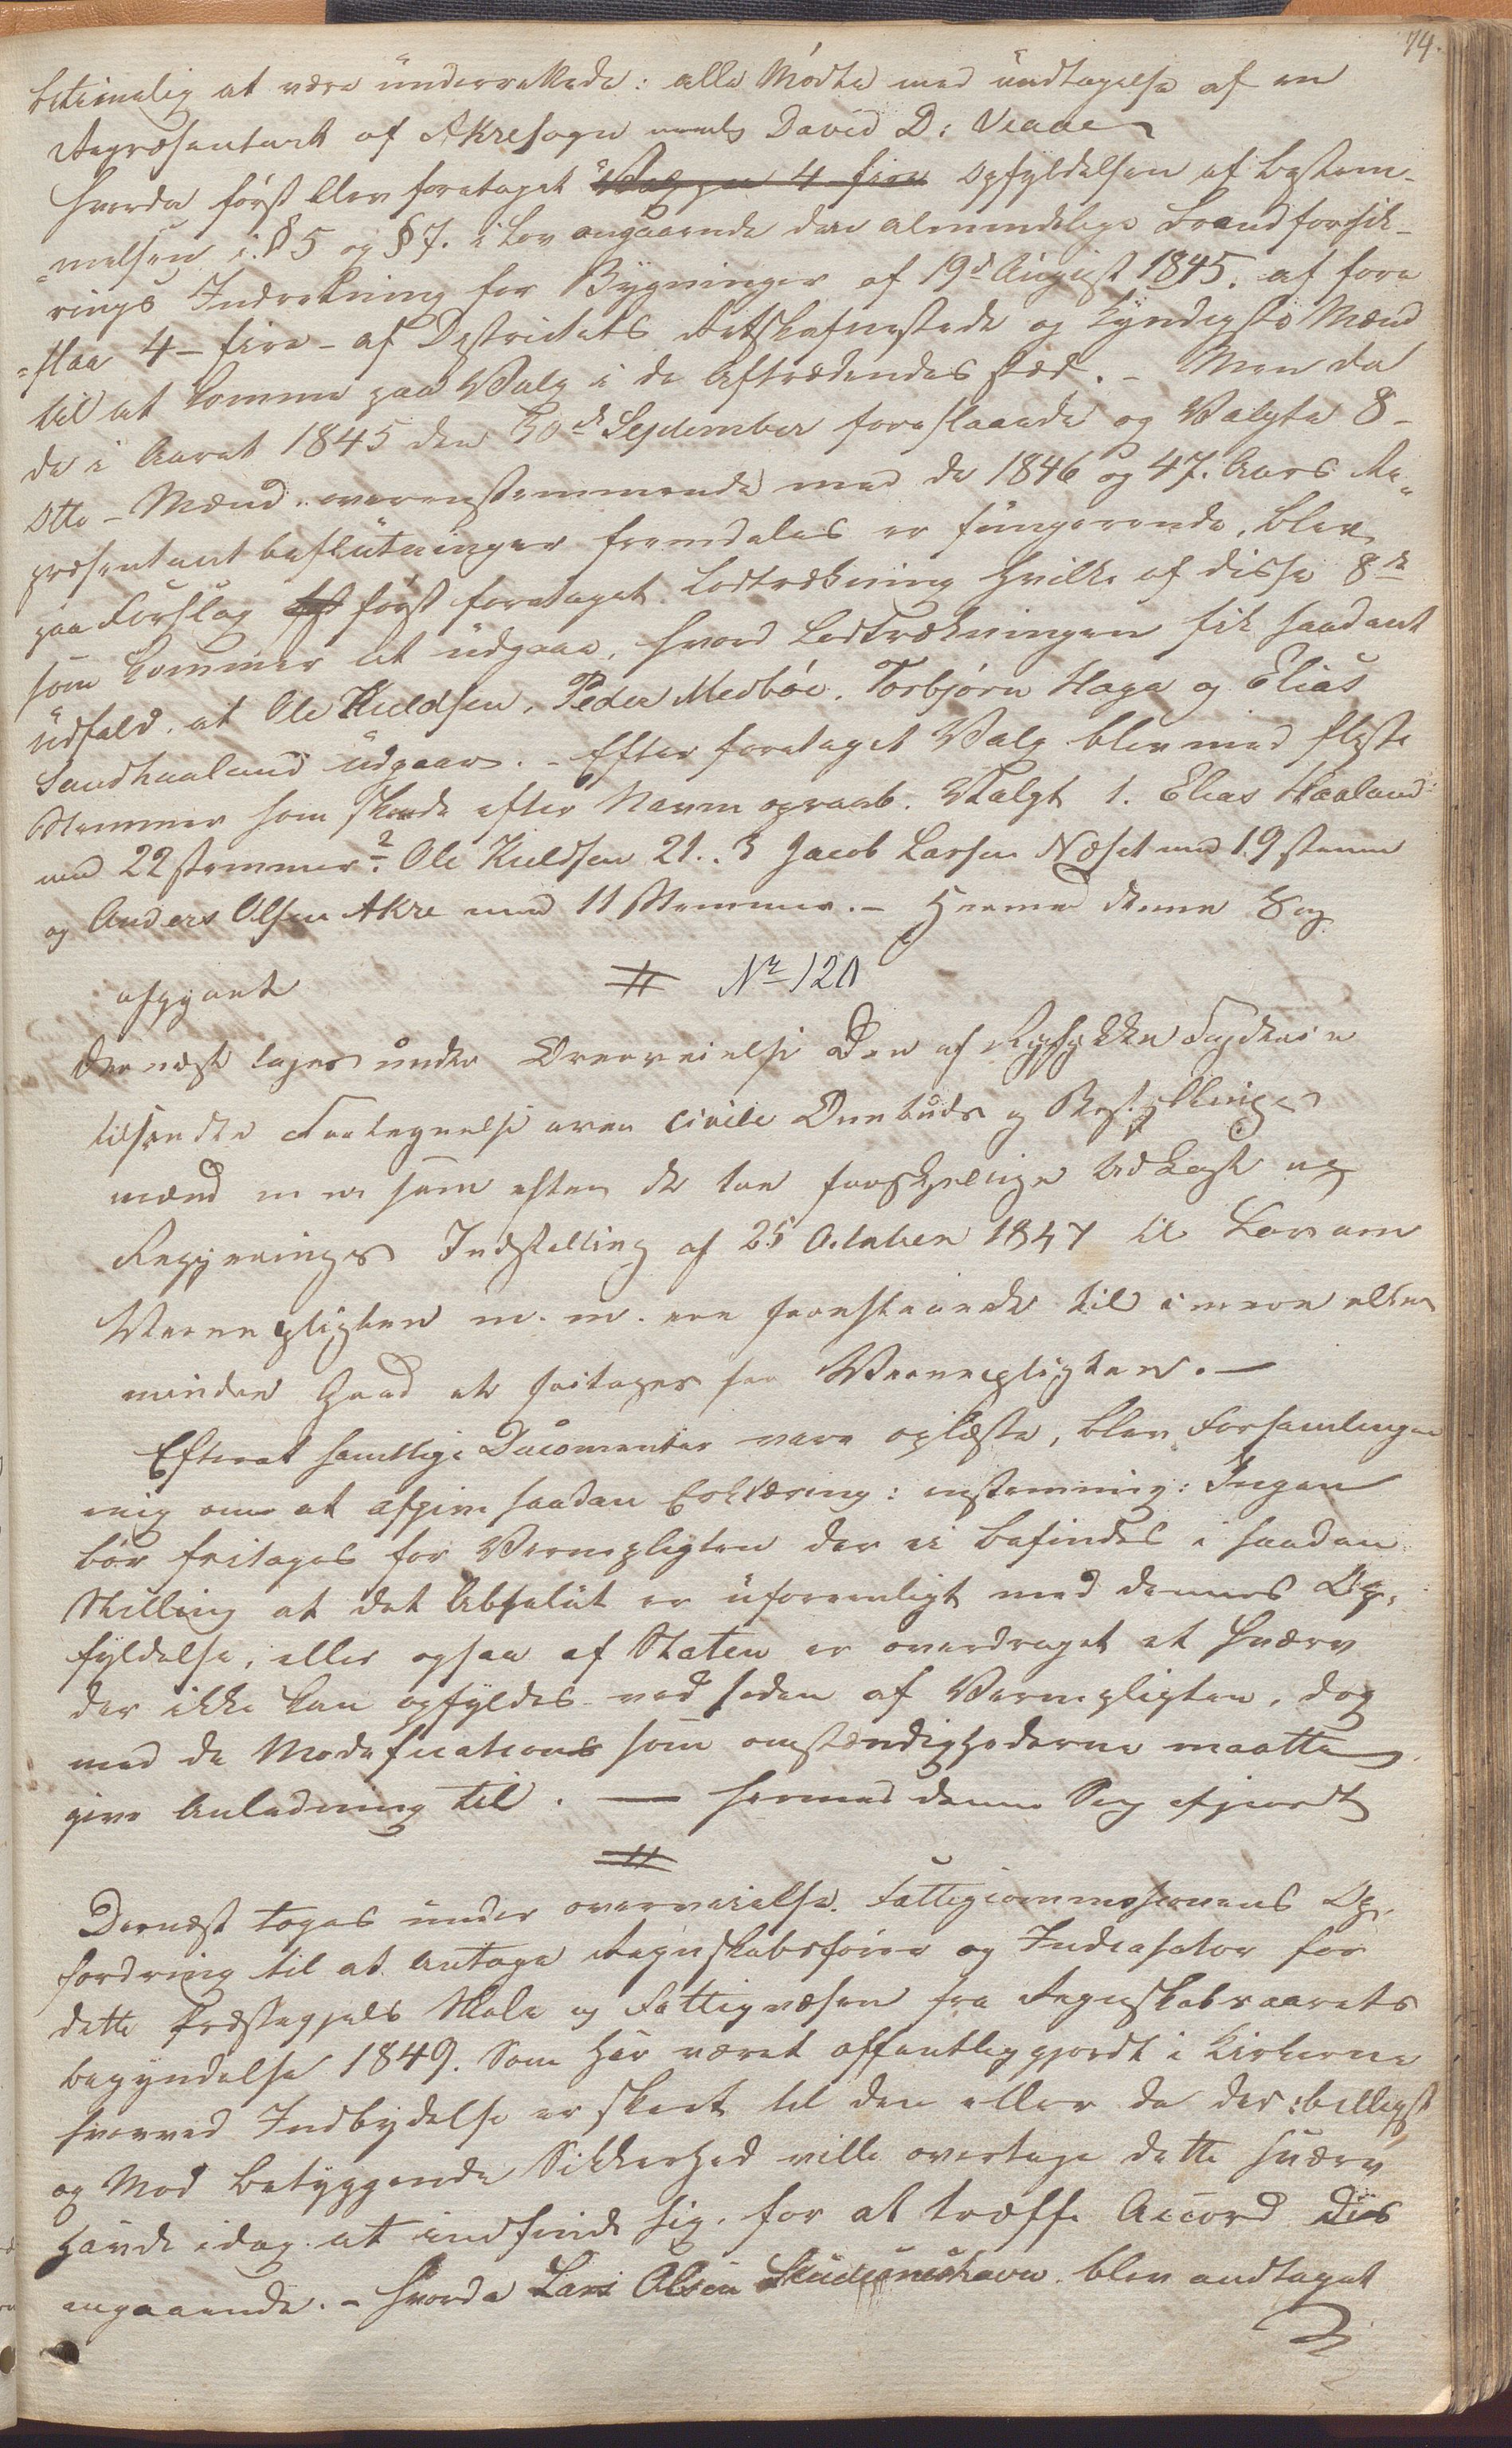 74.
betimelig at være underrettede: alle Mødte med undtagelse af en
Repræsentant af Akresogn navnlig David D: Veaae
Hvorda først blev foretaget Valg paa 4 fire Opfyldelsen af bestem-
melsen i § 5 og § 7. i Lov angaaende den almindelige Brandforsik-
rings Indretning for Bygninger af 19d August 1845. at fore
slaa 4 - fire - af Districtets Retskafneste og kyndigste Mænd
til at komme paa Valg i de Aftrædendes sted. - Men da
de i Aaret 1845 den 30d September foreslaaede og Valgte 8 -
Otte - Mænd overenstemmende med de 1846 og 47. Aars Re-
præsentantbeslutninger fremdeles er fungerende, blev
paa Forslag først foretaget Lodtrækning hvilke af disse 8te
som kommer at udgaae, hvorved Lodtrækningen fik saadant
udfald at Ole Kieldsen, Peder Medbøe, Torbjørn Haga og Elias
Sandhaaland udgaar. - Efter foretaget Valg blev med fleste
Stemmer som skede efter Navne opraab. Valgt 1. Elias Haaland
med 22 stemmer 2. Ole Kieldsen 21.. 3 Jacob Larsen Næset med 19 stemmer
og Anders Olsen Akre med 11 Stemmer. - Hermed denne Sag
afgjort
# No 120
Dernæst toges under Overveielse Den af Ryfylke Fogderie
tilsendte Fortegnelse over civile Ombuds og Bestillings
mænd m m som efter de tvende forskjellige Udkast og
Regjerings Indstilling af 25 October 1847 til Lov om
Værnepligten m. m. ere foreslaaede til i mere eller
mindre Grad at fritages for Værnepligten. -
Efterat samtlige Documenter vare oplæste, blev Forsamlingen
enig om at afgive saadan Erklæring: enstemmig: Ingen
bør fritages for Vernepligten der ei befindes i saadan
Stilling at det Absolut er uforeneligt med dennes Op-
fyldelse, eller ogsaa af Staten er overdraget et Hværv
der ikke kan opfyldes ved siden af Vernepligten, dog
med de Modefications som omstændighederne maatte
give Anledning til. - Hermed denne Sag afgjort
#
Dernæst toges under overveielse Fattigcommissionens Op-
fordring til at Antage Regnskabsfører og Indcasator for
dette Præstegjelds Skole og Fattigvæsen fra Regnskabsaarets
begyndelse 1849. Som har været offentliggjordt i Kirkerne
hvorved Indbydelse er skeet til den eller de der billigst
og Mod betryggende Sikkerhed ville overtage dette Hværv
havde idag at indfinde sig, for at træffe Accord dis
angaaende. - Hvorda Lars Olsen Skudesneshavn blev andtaget